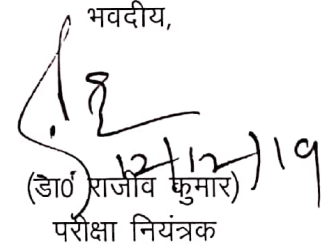 भवदीय,
12/12/19
(डा0 राजीव कुमार)
परीक्षा नियंत्रक